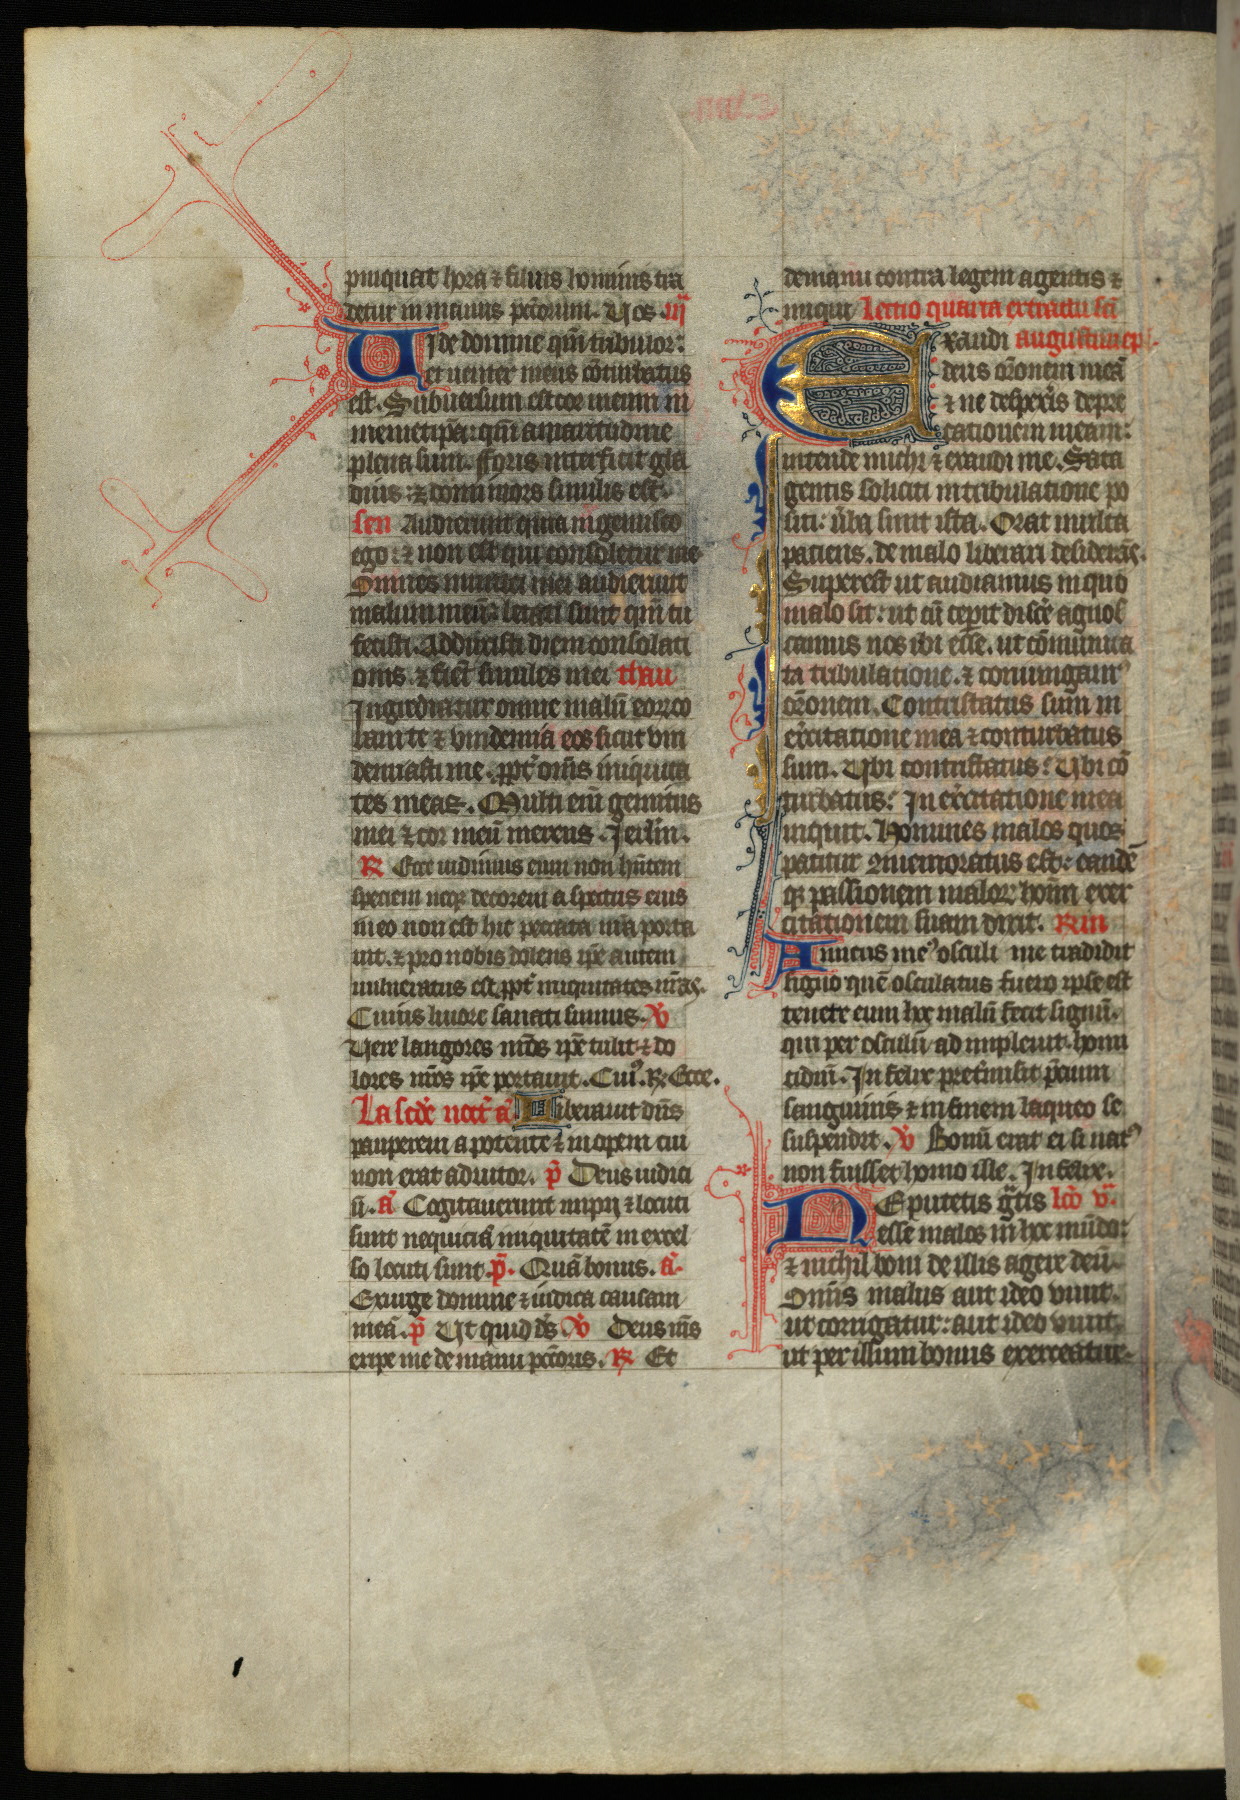 pinquat hora ⁊ filius hominis tra
detur in manus pctorum. Vos. iij
Vide domine qm̄ tribulor:
et venter meus cōturbatus
est. Subuersum est cor meum in
memetipa: qm̄ amaritudine
plena sum. Foris interficit gla
dius: ⁊ domi mors similis est.
sen Audierunt quia ingemisco
ego: ⁊ non est qui consoletur me
Omnes inimici mei audierunt
malum meū: letati sunt qm̄ tu
fecisti. Adduxisti diem consolati
onis. ⁊ fiēt similes mei thau
Ingrediatur omne malū eor co
ram te ⁊ vindemia eos sicut vin
demiasti me. ppt̄ om̄s iniquita
tes meas. Multi em̄ gemitus
mei ⁊ cor meū merens. Jerl̄m.
R Ecce vidimus eum non hn̄tem
speciem neqꝫ decorem aspectus eius
in eo non est hic peccata nr̄a porta
uit. ⁊ pro nobis dolens ip̄e autem
vulneratus est ppt̄ iniquitates nr̄as.
Cuius liuore sanati sumus. V
Vere langores nr̄os ip̄e tulit ⁊ do
lores nr̄os ip̄e portauit. Cuiꝰ. R. Ecce.
In scd̄o noct̄ a Liberauit dn̄s
pauperem a potente ⁊ inopem cui
non erat adiutor. p̄ Deus iudici
ū. a Cogitauerunt impij ⁊ locuti
sunt nequiciā iniquitatē in excel
so locuti sunt. p̄. Quā bonus. a.
Exurge domine ⁊ iudica causam
meā. p̄ Ut quid ds̄ V Deus ms̄
eripe me de manu pctoris. R Et
de manu contra legem agentis ⁊
iniqui Lectio quarta ex tractu sci
Exaudi augustini ep̄i.
deus orōnem meā
⁊ ne despexeris depre
cationem meam:
intende michi ⁊ exaudi me. Sata
gentis soliciti in tribulatione po
siti: ūba sunt ista. Orat multa
patiens. de malo liberari desiderās.
Superest ut audiamus in quo
malo sit: ut cū ceperit dicere agnos
camus nos ibi esse. ut cōmunica
ta tribulatione. ⁊ coniungamꝰ
orōnem. Contristatus sum in
exercitatione mea ⁊ conturbatus
sum. Vbi contristatus? Vbi cō
turbatus? In exercitatione mea
inquit. Homines malos quos
patitur memoratus est: eandē
qꝫ passionem malor hoīm exer
citationem suam dixit. R m
Amicus meꝰ osculi me tradidit
signo quē osculatus fuero ipse est
tenete eum hoc malū fecit signū.
qui per osculū adimpleuit homi
cidiū. Infelix pretermisit precium
sanguinis ⁊ in finem laqueo se
suspendit. V Bonū erat ei si natꝰ
non fuisset homo ille. Infelix.
Ne putetis gratis lcō v.
esse malos in hoc mūdo:
⁊ nichil boni de illis agere deū.
Omīs malus aut ideo viuit.
ut corrigatur: aut ideo viuit.
ut per illum bonus exerceatur.